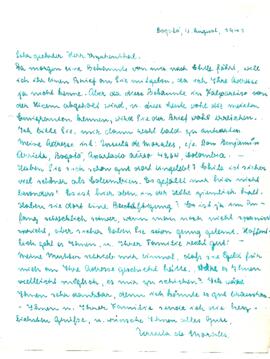 Bogotá, 4. August, 1941
Sehr geehrter Herr
Da morgen eine Bekannte von mir nach Chile fährt, will
ich ihr einen Brief an Sie mitgeben, da ich Ihre Adresse
ja nicht kenne. Aber da diese Bekannte in Valparaiso von
der abgeholt wird, u. diese wohl die meisten
Emigranten kennen, wird Sie der Brief wohl erreichen.
Ich bitte Sie, mir dann recht bald zu antworten
Meine Adresse ist: Ursula de Morales, c/o Don Benjamin
Bogotá, Apartado aéreo Colombia. –
Haben Sie sich schon gut dort eingelebt? Chile ist sicher
viel schöner als Columbien. Es gefällt mir hier nicht
besonders. Es ist hier oben, in der Höhe ziemlich kalt.
Haben Sie dort eine Beschäftigung? Es ist ja im An-
fang schrecklich schwer, wenn man noch nicht spanisch
spricht, aber sicher haben Sie schon genug gelernt. Hoffent-
lich geht es Ihnen u. Ihrer Familie recht gut! –
Meine Mutter schrieb mir einmal, dass sie Geld für
mich an Ihre Adresse geschickt hätte. Wäre es Ihnen
vielleicht möglich, es mir zu schicken? Ich wäre
Ihnen sehr dankbar, denn ich könnte es gut brauchen.
– Ihnen u. Ihrer Familie sende ich die herz-
lichsten Grüsse, u. wünsche Ihnen alles Gute.
Ursula de Morales.